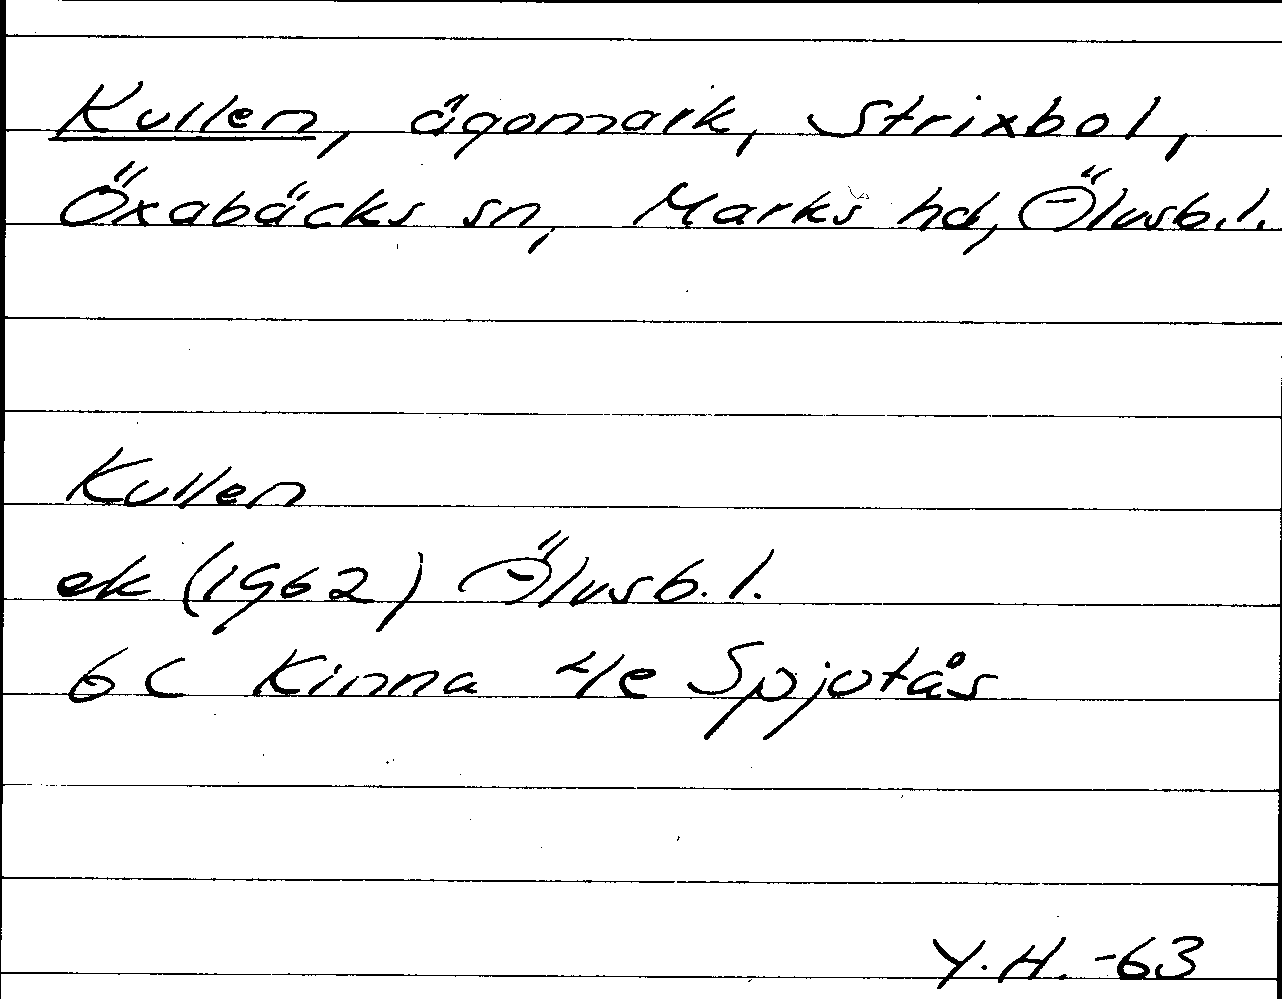 Kullen, ägomark, Strixbol,
Öxabäcks sn, Marks hd, Älvsb.l.
Kullen
ek (1962) Älvsb.l.
6 C Kinna 4e Spjutås
Y.H. -63